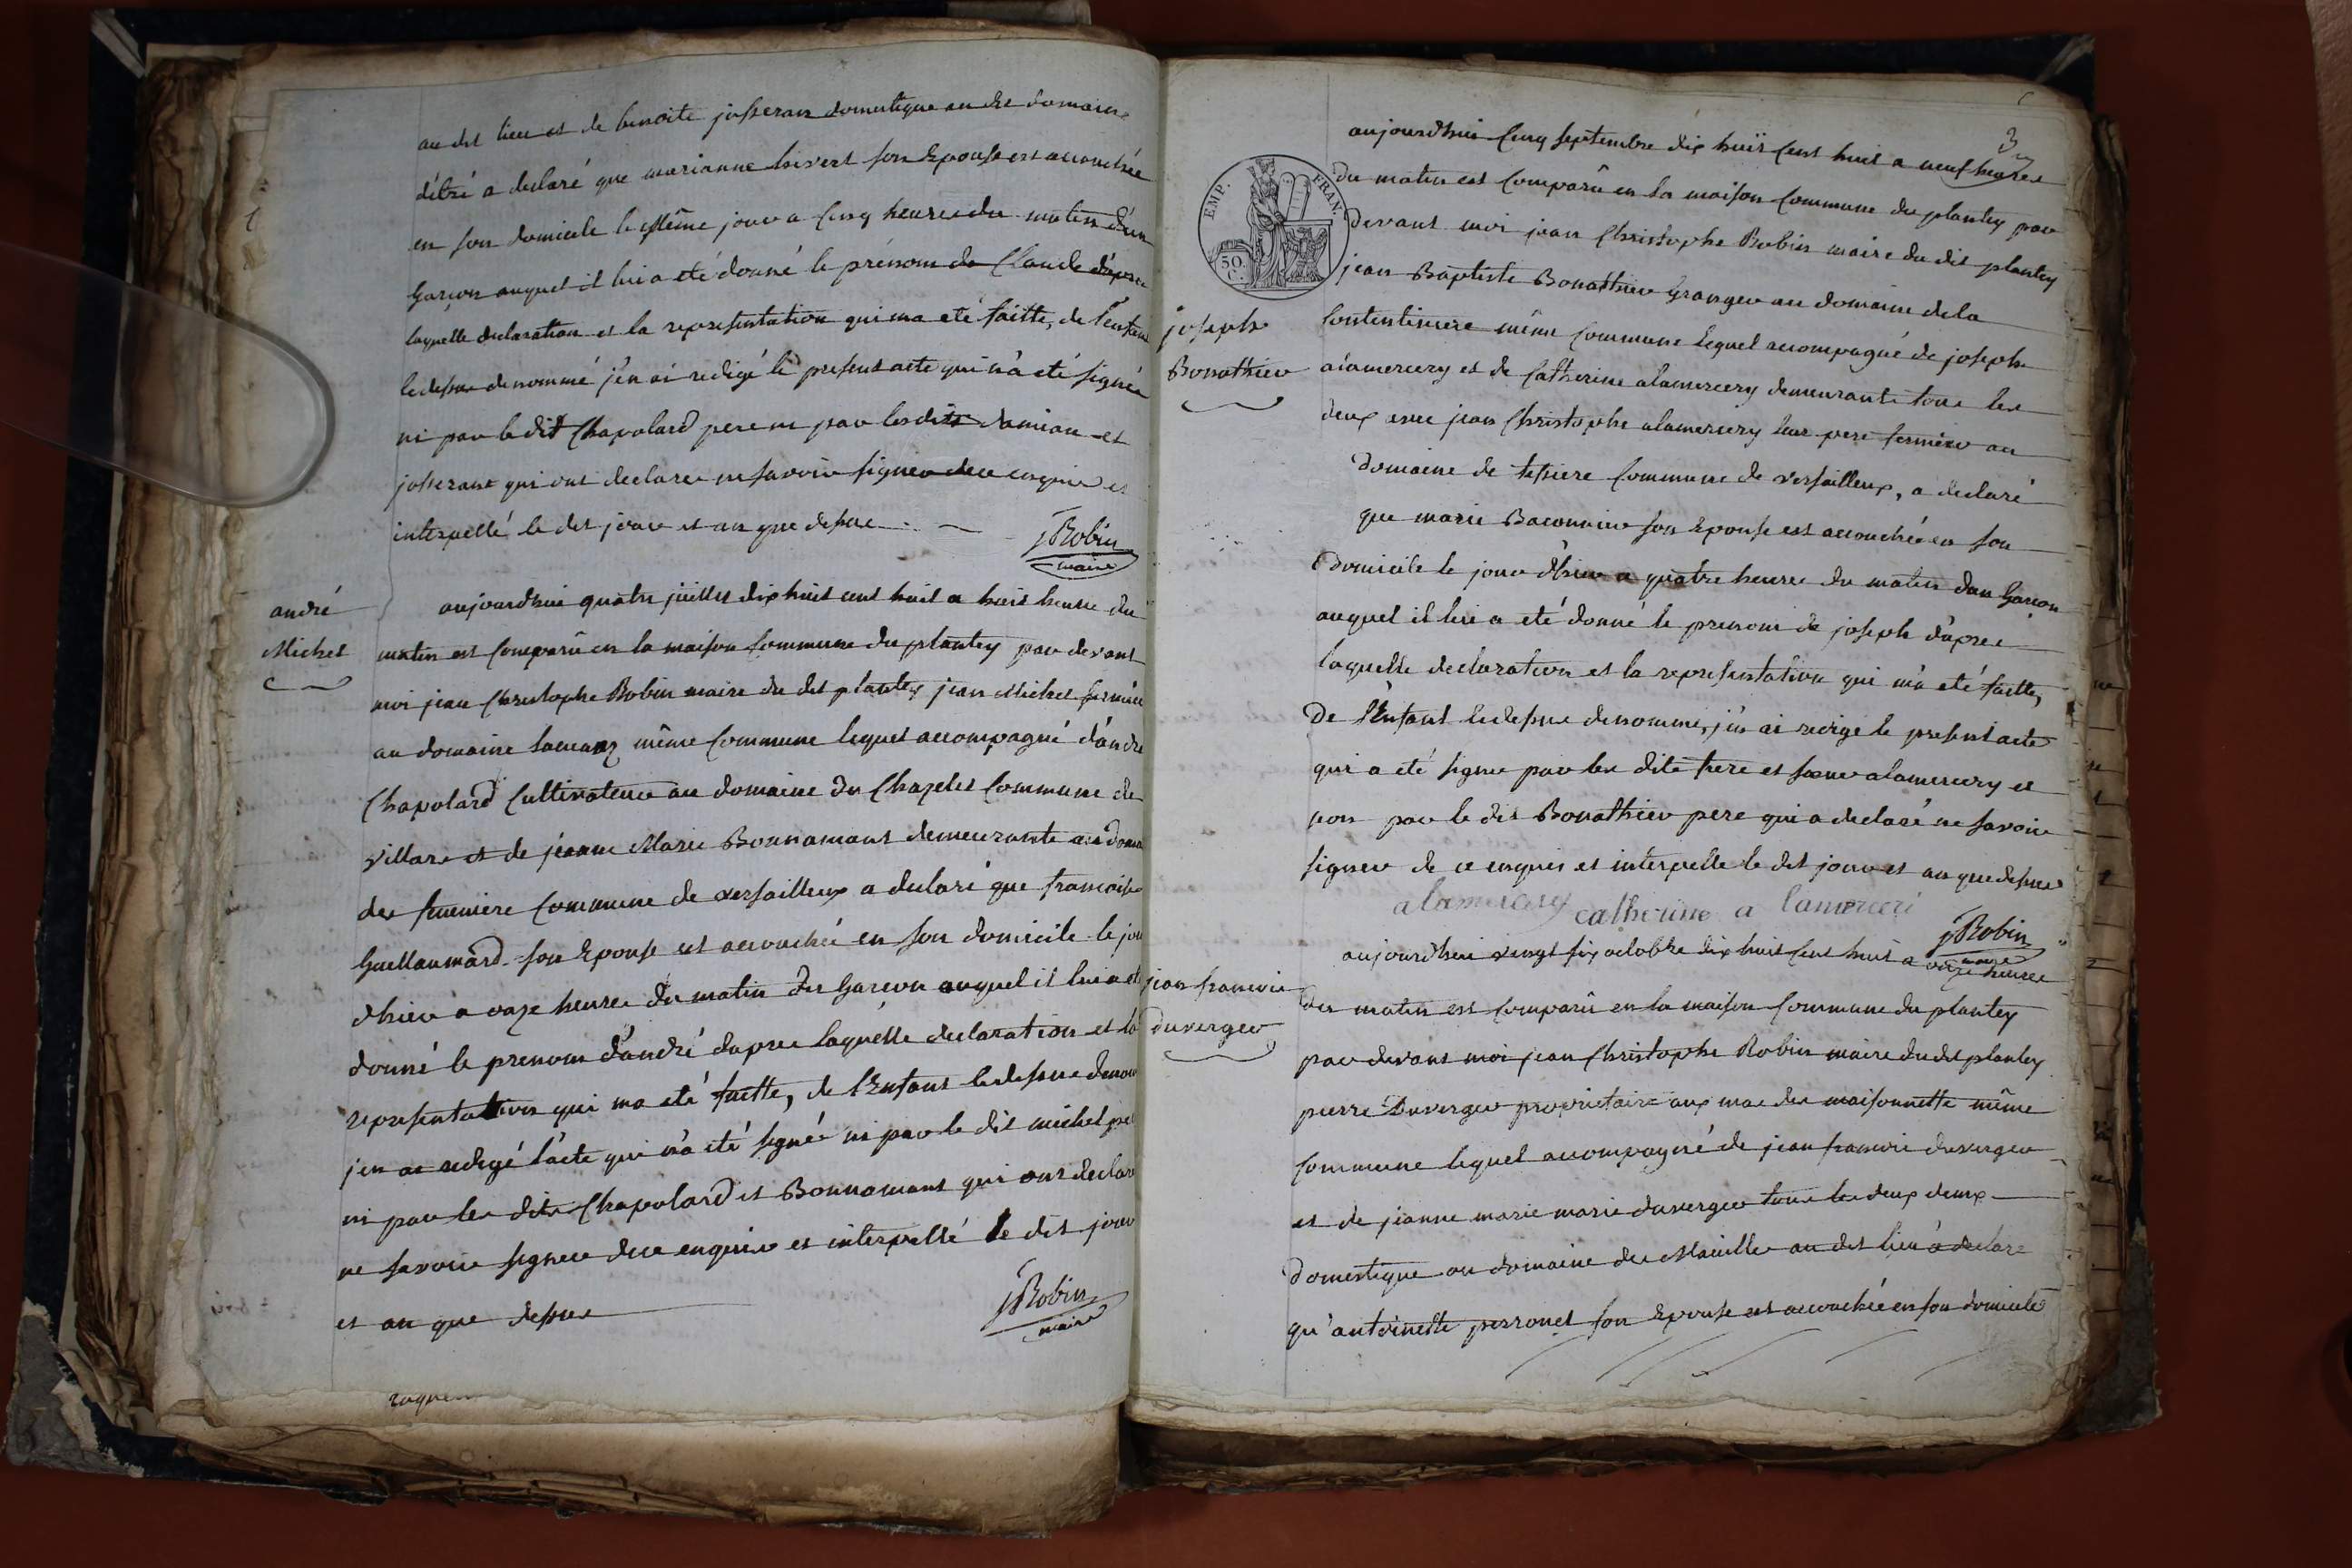 au dit lieu et de benoite josserans domestique au dit domaine
a declaré que marianne son Epouse est accouchée
en son domicile le même jour a cinq heures du matin d'un
Garçon auquel il lui a eté donné le prénom de Claude d'apres
laquelle declaration et la representation qui ma eté faitte, de l'enfant
ledessus denommé j'en ai redigé le present acte qui n'a eté signé
ni par le dit Chapolard pere ni par les dits et
josserans qui ont declares ne savoir signer de ce enquis et
interpellé le dit jour et an que dessus
JRobin
maire
andré
Michel
aujourdhui quatre juillet dix huit cent huit a huit heures du
matin est comparû en la maison Commune du plantey par devant
moi jean Christophe Robin maire du dit plantey jean Michel fermier
au domaine même Commune lequel accompagné d'andré
Chapolard Cultivateur au domaine du Chapelet Commune de
villars et de jeanne Marie Bonnamant demeurante au
des Commune de versailleux a declaré que francoise
Guillaumard son Epouse est accouchée en son domicile le jour
dhier a onze heures du matin d'un Garcon auquel il lui a eté
donné le prenom d'andré dapres laquelle declaration et la
representation qui ma eté faitte, de l'Enfant ledessus
j'en ai redigé l'acte qui n'a eté signé ni par le dit michel pere
ni par les dits Chapolard et Bonnamant qui ont declaré
ne savoir signer de ce enquis et interpellé le dit jour
et an que dessus
JRobin
maire
3
EMP. FRAN.
50 C.
joseph
Bonathier
aujourdhui Cinq septembre dix huit Cent huit a neuf heures
du matin est Comparû en la maison Commune du plantey par
devant moi jean Christophe Robin maire du dit plantey
jean Baptiste Bonathier Granger au domaine de la
même Commune lequel accompagné de joseph
alamercery et de Catherine alamercery demeurants tous les
deux avec jean Christophe alamercery leur pere fermier au
domaine de Commune de versailleux, a declaré
que marie Baconnier son Epouse est accouchée en son
domicile le jour d'hier a quatre heures du matin dun Garcon
auquel il lui a eté donné le prenom de joseph d'apres
laquelle declaration et la representation qui m'a eté faitte,
De l'Enfant ledessus denommé, j'en ai redigé le present acte
qui a eté signé par les dits frere et soeur alamercery et
non par le dit Bonathier pere qui a declaré ne savoir
signer de ce enquis et interpellé le dit jour et an que dessus
alamercery catherine a lamerceri
JRobin
maire
jean francois
duverger
aujourdhui vingt six octobre dix huit Cent huit a onze heures
du matin est Comparû en la maison Commune du plantey
par devant moi jean Christophe Robin maire du dit plantey
pierre Duverger proprietaire aux mas des maisonnette même
Commune lequel accompagné de jean francois duverger
et de jeanne marie marie duverger tous les deux deux
domestique au domaine des au dit lieu a declaré
qu'antoinette perronet son Epouse est accouchée en son domicile